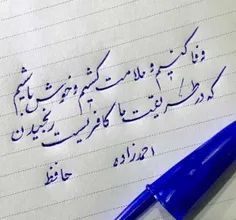 وفا کنیم و ملامت کشیم و خوش باشیم
که در طریقت ما کافریست رنجیدن
احمدزاده
حافظ